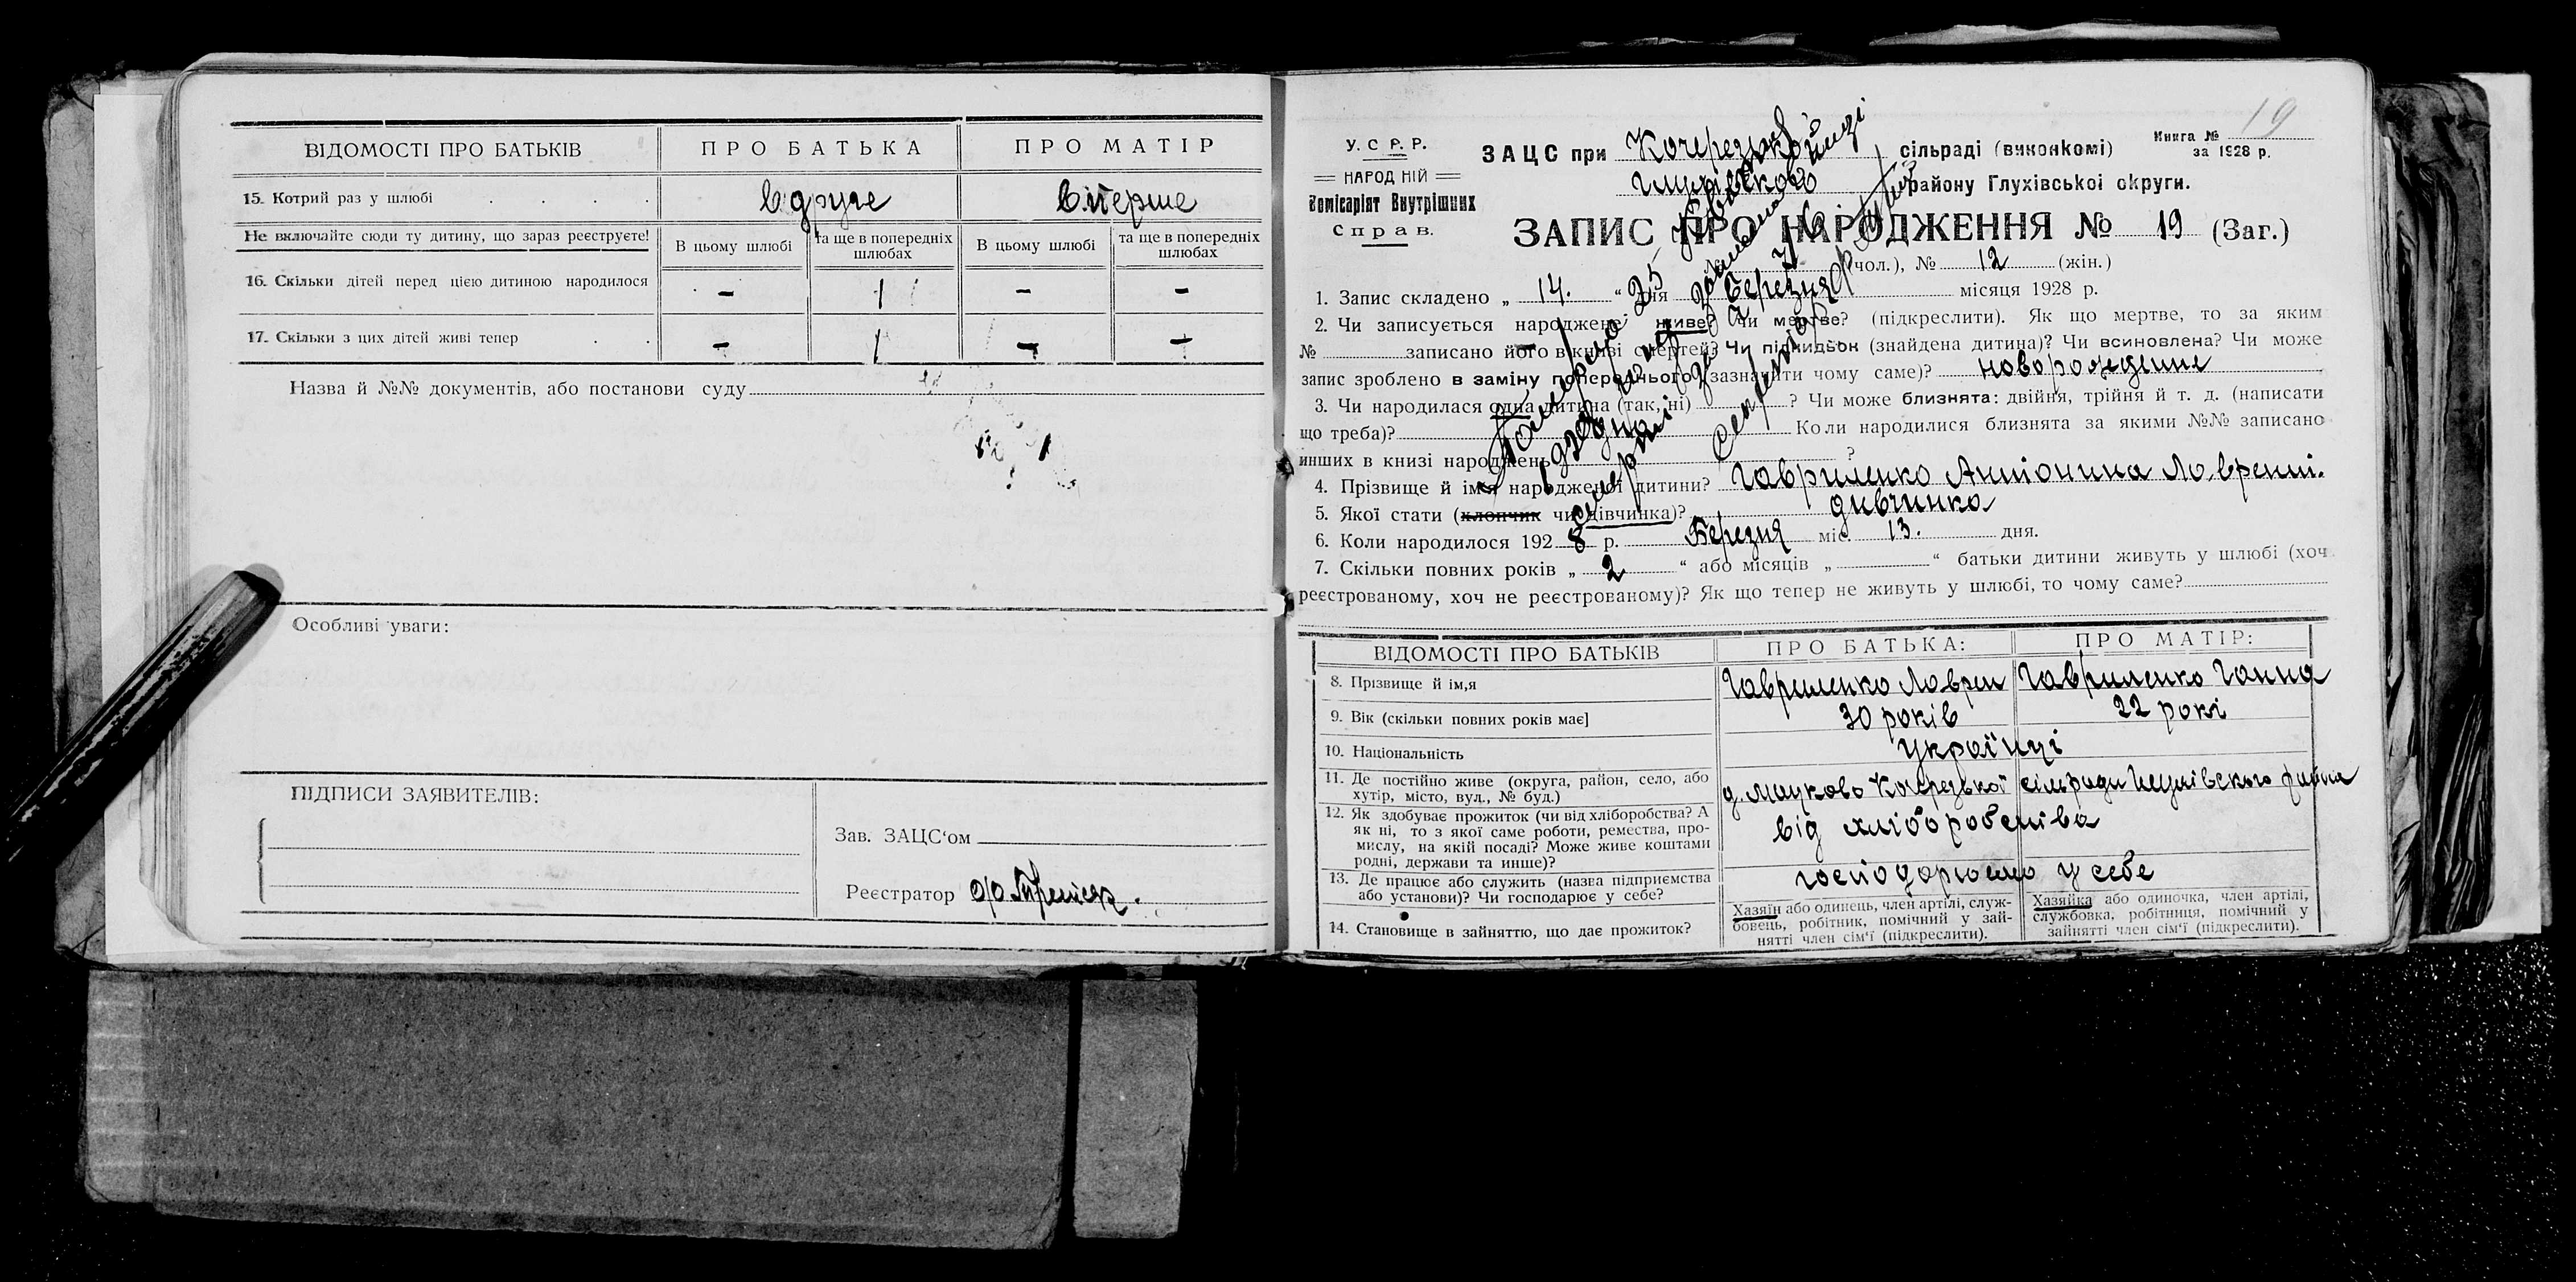 ВІДОМОСТІ ПРО БАТЬКІВ ПРО БАТЬКА ПРО МАТІР
15. Котрий раз у шлюбі вдруге вперше
Не включайте сюди ту дитину, що зараз реєструєте!
В цьому шлюбі та ще в попередніх шлюбах В цьому шлюбі та ще в попередніх шлюбах
16. Скільки дітей перед цією дитиною народилося - 1 - -
17. Скільки з цих дітей живі тепер - 1 - -
Назва й №№ документів, або постанови суду
Особливі уваги:
ПІДПИСИ ЗАЯВИТЕЛІВ:
Зав. ЗАЦС'ом
Реєстратор
19
У. С. Р. Р.
НАРОДНІЙ
Комісаріят Внутрішних
Справ.
ЗАЦС при сільраді (виконкомі)
Книга №
за 1928 р.
району Глухівської округи.
ЗАПИС ПРО НАРОДЖЕННЯ № 19 (Заг.)
(чол.), № 12 (жін.)
1. Запис складено „ 14. “ дня Березня місяця 1928 р.
2. Чи записується народжене: живе? Чи мертве? (підкреслити). Як що мертве, то за яким
№ записано його в книзі смертей? Чи підкидьок (знайдена дитина)? Чи всиновлена? Чи може
запис зроблено в заміну попереднього (зазначити чому саме)? новорождение
3. Чи народилася одна дитина (так, ні) ? Чи може близнята: двійня, трійня й т. д. (написати
що треба)? Коли народилися близнята за якими №№ записано
инших в книзі народжень ?
4. Прізвище й ім'я народженої дитини? Гавриленко Антонина Лаврент.
5. Якої стати (хлопчик чи дівчинка)? дивчинка
6. Коли народилося 192 8 р. Березня міс. 13. дня.
7. Скільки повних років „ 2 “ або місяців „ “ батьки дитини живуть у шлюбі (хоч
реєстрованому, хоч не реєстрованому)? Як що тепер не живуть у шлюбі, то чому саме?
ВІДОМОСТІ ПРО БАТЬКІВ ПРО БАТЬКА: ПРО МАТІР:
8. Прізвище й ім,я Гавриленко Лаврен Гавриленко Ганна
9. Вік (скільки повних років має] 30 років 22 рокі
10. Національність українці
11. Де постійно живе (округа, район, село, або
хутір, місто, вул., № буд.)
12. Як здобуває прожиток (чи від хліборобства? А
як ні, то з якої саме роботи, ремества, про-
мислу, на якій посаді? Може живе коштами
родні, держави та инше)?
від хліборобства
13. Де працює або служить (назва підприємства
або установи)? Чи господарює у себе?
господорюемо у себе
14. Становище в зайняттю, що дає прожиток?
Хазяїн або одинець, член артілі, служ-
бовець, робітник, помічний у зай-
нятті член сім'ї (підкреслити).
Хазяйка або одиночка, член артілі,
службовка, робітниця, помічний у
зайнятті член сім'ї (підкреслити).